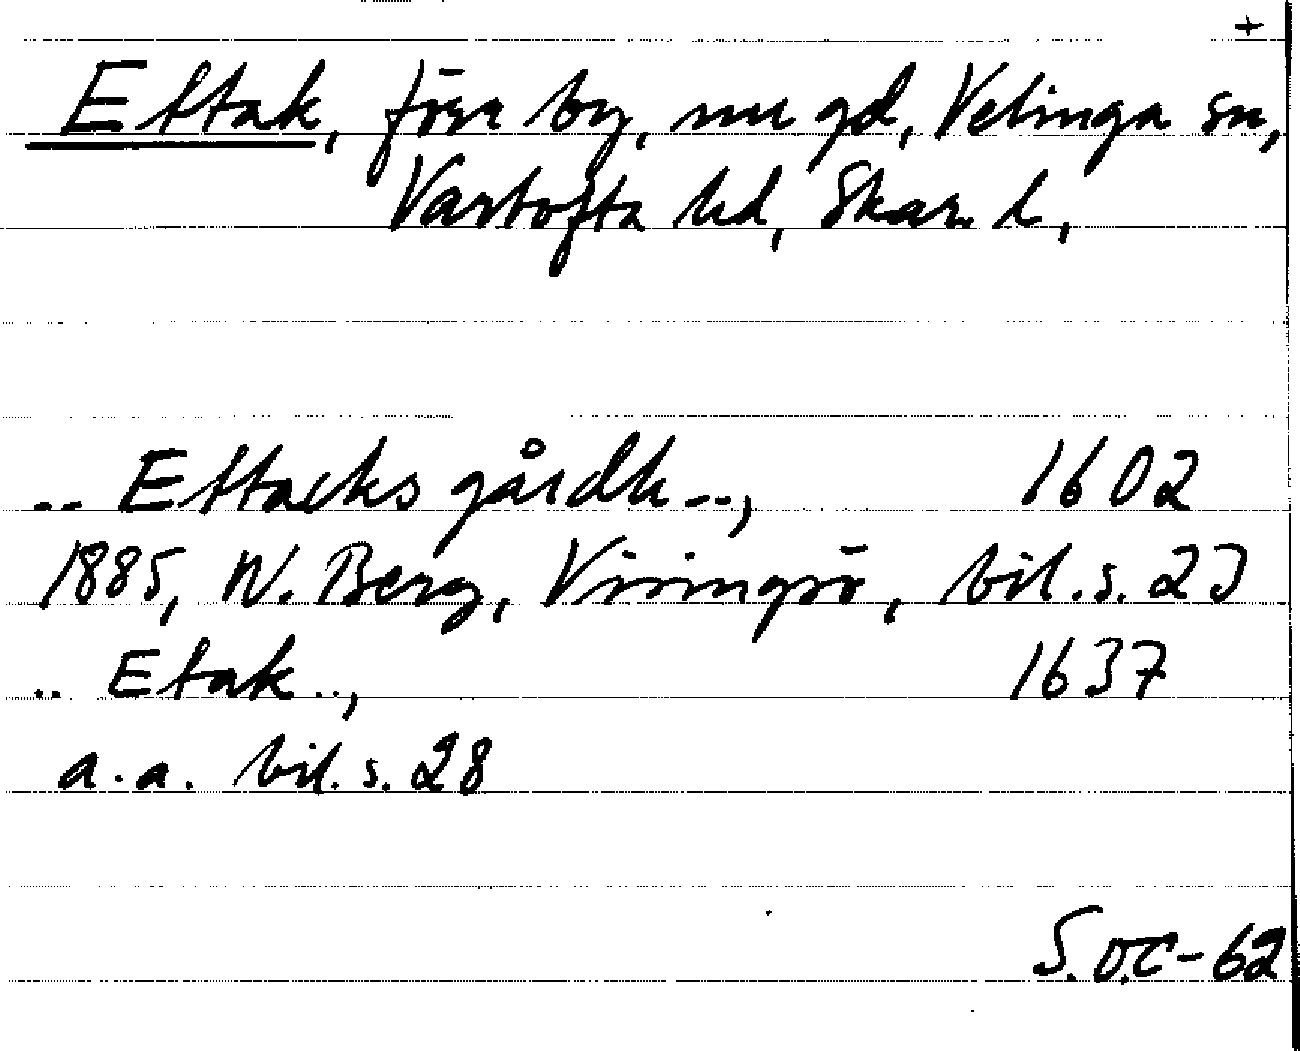 +
Ettak, förr by, nu gd, Velinga sn,
Vartofta hd, Skar. l,
.. Ettacks gårdh..., 1602
1885, W. Berg, Visingsö, bil. s. 23
.. Etak.., 1637
a.a. bil. s. 28
S.O.C-62